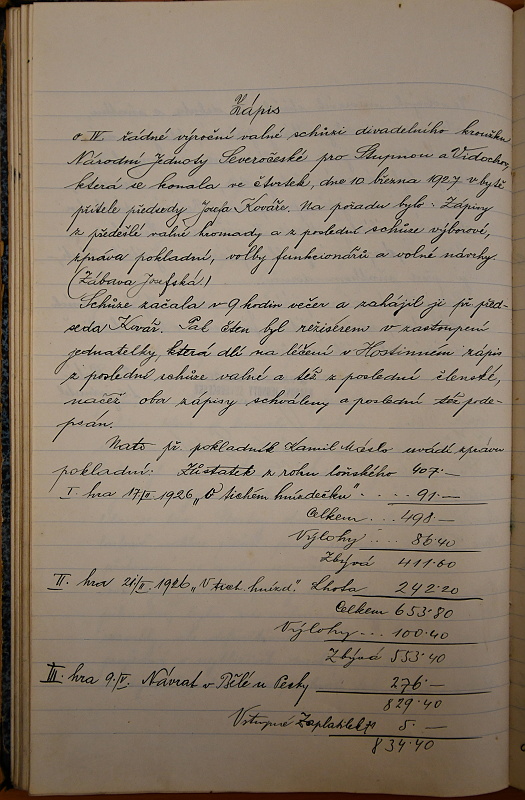 Zápis
o IV. řádné výroční valné schůzi divadelního kroužku
Národní Jednoty Severočeské pro Stupnou a Vidochov,
která se konala ve čtvrtek, dne 10. března 1927 v bytě
přítele předsedy Josefa Kováře. Na pořadu bylo: Zápisy
z předešlé valné hromady a z poslední schůze výborové,
zpráva pokladní, volby funkcionářů a volné návrhy.
(Zábava Josefská!)
Schůze začala v 9 hodin večer a zahájil ji př. před-
seda Kovář. Pak čten byl režisérem v zastoupení
jednatelky, která dlí na léčení v Hostinném zápis
z poslední schůze valné a též z poslední členské,
načež oba zápisy schváleny a poslední též pode-
psán.
Nato př. pokladník Kamil Máslo uvádí zprávu
pokladní: Zůstatek z roku loňského 407·—
I. hra 17/II. 1926 „O tichém hnízdečku" . . . . . 91·—
Celkem . . . 498·—
Výlohy . . . . 86·40
Zbývá 411·60
II. hra 21/II. 1926 „V tich. hnízd." Lhota 242·20
Celkem 653·80
Výlohy . . . 100·40
Zbývá 553·40
III. hra 9/V. Návrat v Bělé u Pecky 276·—
829·40
Vstupné 5·—
834·40